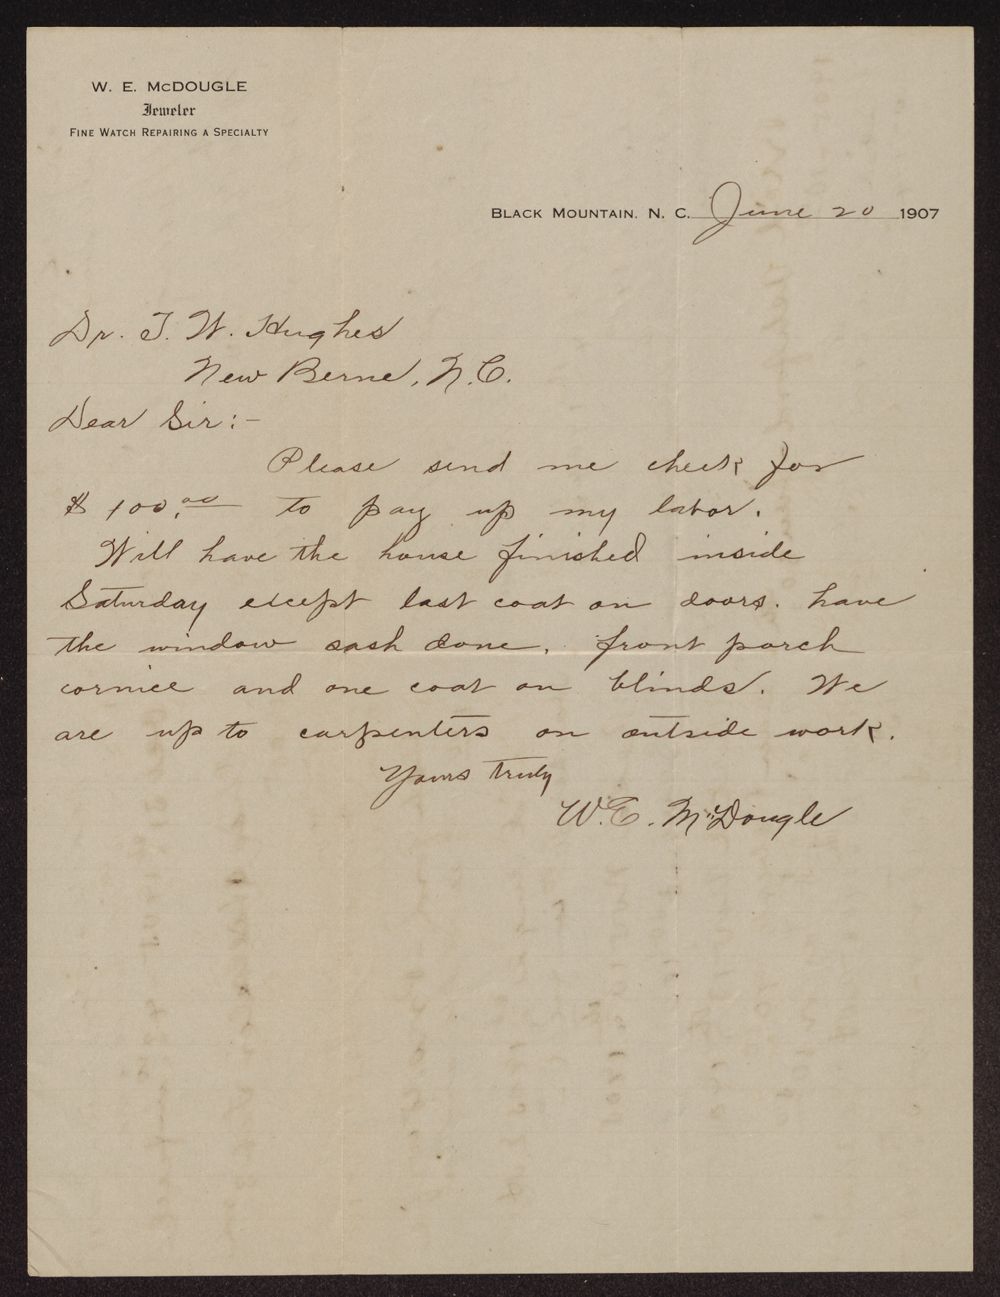 W. E. McDOUGLE
Jeweler
FINE WATCH REPAIRING A SPECIALTY
BLACK MOUNTAIN. N. C. June 20 1907
Dr. T. W. Hughes
New Berne, N.C.
Dear Sir:-
Please send me check for
$100.00 to pay up my labor.
Will have the house finished inside
Saturday except last coat on doors. have
the window sash done, front porch
cornice and one coat on blinds. We
are up to carpenters on outside work.
Yours truly
W.E. McDougle